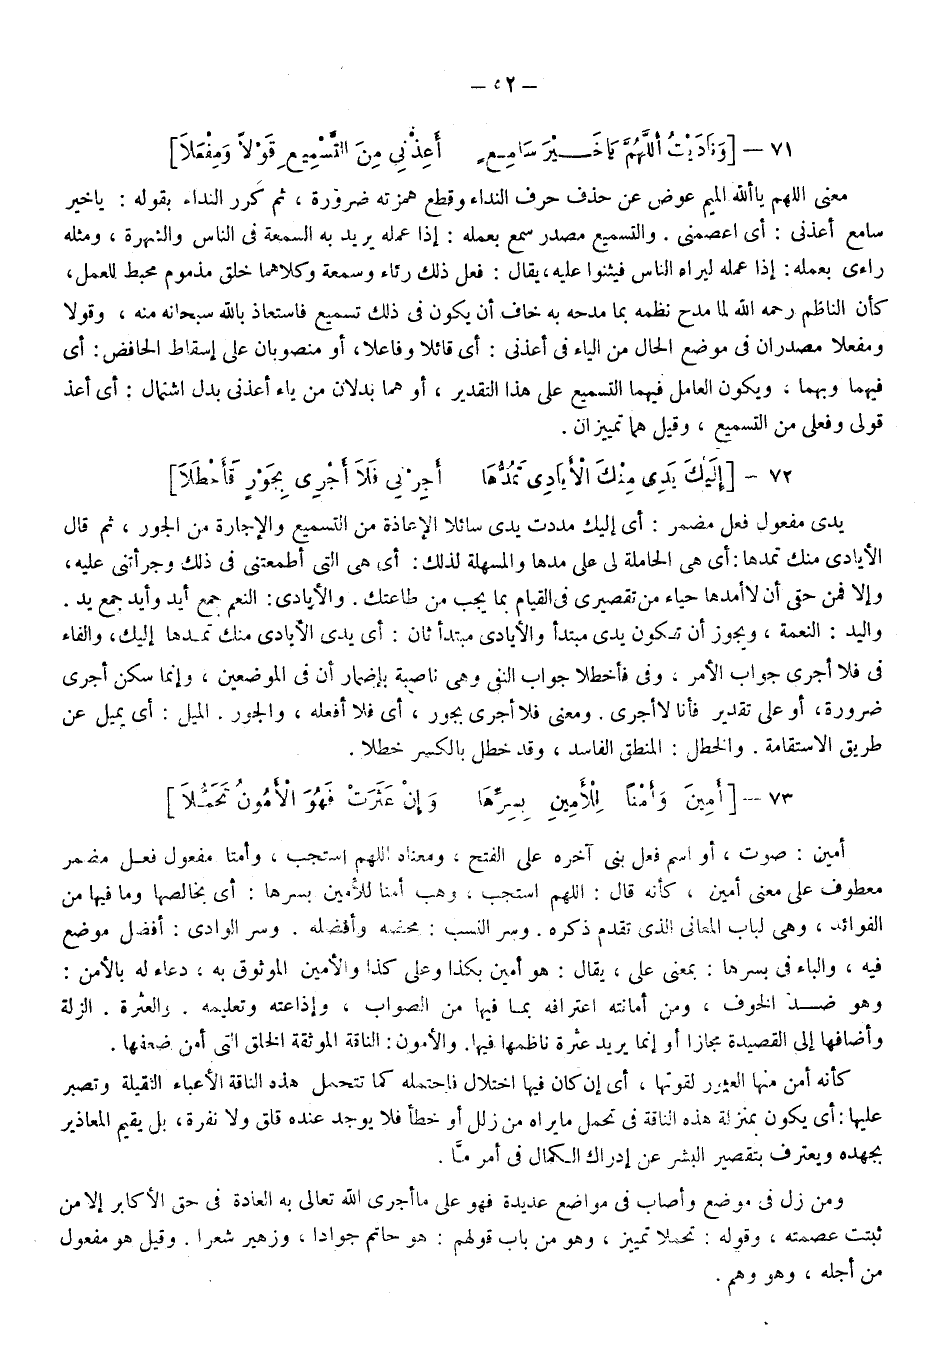 — ٥٢ —
٧١ — [وَنَادَيْتُ أَللَّهُمَّ يَا خَــيْرَ سَامِعٍ أَعِذْنِي مِنَ التَّسْمِيعِ قَوْلاً وَمِفْعَلاَ]
معنى اللهم ياألله الميم عوض عن حذف حرف النداء وقطع همزته ضرورة ، ثم كرر النداء بقوله : ياخير
سامع أعذنى : أى اعصمنى . والتسميع مصدر سمع بعمله : إذا عمله يريد به السمعة فى الناس والشهرة ، ومثله
راءى بعمله : إذا عمله ليراه الناس فيثنوا عليه، يقال : فعل ذلك رئاء وسمعة وكلاهما خلق مذموم محبط للعمل،
كأن الناظم رحمه الله لما مدح نظمه بما مدحه به خاف أن يكون فى ذلك تسميع فاستعاذ بالله سبحانه منه ، وقولا
ومفعلا مصدران فى موضع الحال من الياء فى أعذنى : أى قائلا وفاعلا، أو منصوبان على إسقاط الخافض : أى
فيهما وبهما ، ويكون العامل فيهما التسميع على هذا التقدير ، أو هما بدلان من ياء أعذنى بدل اشتمال : أى أعذ
قولى وفعلى من التسميع ، وقيل هما تمييزان .
٧٢ — [إِلَيْكَ يَدِى مِنْكَ الْأَيَادِى تَمُدُّهَا أَجِرْنِي فَلاَ أَجْرِى بِجَوْرٍ فَأَخْطَلاَ]
يدى مفعول فعل مضمر : أى إليك مددت يدى سائلا الإعاذة من التسميع والإجارة من الجور ، ثم قال
الأيادى منك تمدها : أى هى الحاملة لى على مدها والمسهلة لذلك : أى هى التى أطمعتنى فى ذلك وجرأتنى عليه،
وإلا فمن حقى أن لاأمدها حياء من تقصيرى فى القيام بما يجب من طاعتك . والأيادى : النعم جمع أيد وأيد جمع يد .
واليد : النعمة ، ويجوز أن تكون يدى مبتدأ والأيادى مبتدأ ثان : أى يدى الأيادى منك تمدها إليك، والفاء
فى فلا أجرى جواب الأمر ، وفى فأخطلا جواب النفى وهى ناصبة بإضمار أن فى الموضعين ، وإنما سكن أجرى
ضرورة، أو على تقدير فأنا لاأجرى . ومعنى فلا أجرى بجور ، أى فلا أفعله ، والجور . الميل : أى يميل عن
طريق الاستقامة . والخطل : المنطق الفاسد ، وقد خطل بالكسر خطلا .
٧٣ — [أَمِينَ وَأَمْنًا لِلْأَمِينِ بِسِرِّهَا وَإِنْ عَثَرَتْ فَهُوَ الْأَمُونُ تَحَمُّلاَ]
أمين : صوت ، أو اسم فعل بنى آخره على الفتح ، ومعناه اللهم استجب ، وأمنا مفعول فعـل مضمر
معطوف على معنى أمين ، كأنه قال : اللهم استجب ، وهب أمنا للأمين بسرها : أى بخالصها وما فيها من
الفوائد ، وهى لباب المعانى الذى تقدم ذكره . وسر النسب : محضه وأفضله . وسر الوادى : أفضل موضع
فيه ، والباء فى بسرها : بمعنى على ، يقال : هو أمين بكذا وعلى كذا والأمين الموثوق به ، دعاء له بالأمن :
وهو ضــد الخوف ، ومن أمانته اعترافه بمـا فيها من الصواب ، وإذاعته وتعليمه . والعثرة . الزلة
وأضافها إلى القصيدة مجازا أو إنما يريد عثرة ناظمها فيها. والأمون : الناقة الموثقة الخلق التى أمن ضعفها .
كأنه أمن منها العثور لقوتها ، أى إن كان فيها اختلال فاحتمله كما تتحمل هذه الناقة الأعباء الثقيلة وتصبر
عليها : أى يكون بمنزلة هذه الناقة فى تحمل مايراه من زلل أو خطأ فلا يوجد عنده قلق ولا نفرة، بل يقيم المعاذير
بجهده ويعترف بتقصير البشر عن إدراك الكمال فى أمر مّا .
ومن زل فى موضع وأصاب فى مواضع عديدة فهو على ماأجرى الله تعالى به العادة فى حق الأكابر إلا من
ثبتت عصمته ، وقوله : تحملا تمييز ، وهو من باب قولهم : هو حاتم جوادا ، وزهير شعرا . وقيل هو مفعول
من أجله ، وهو وهم .